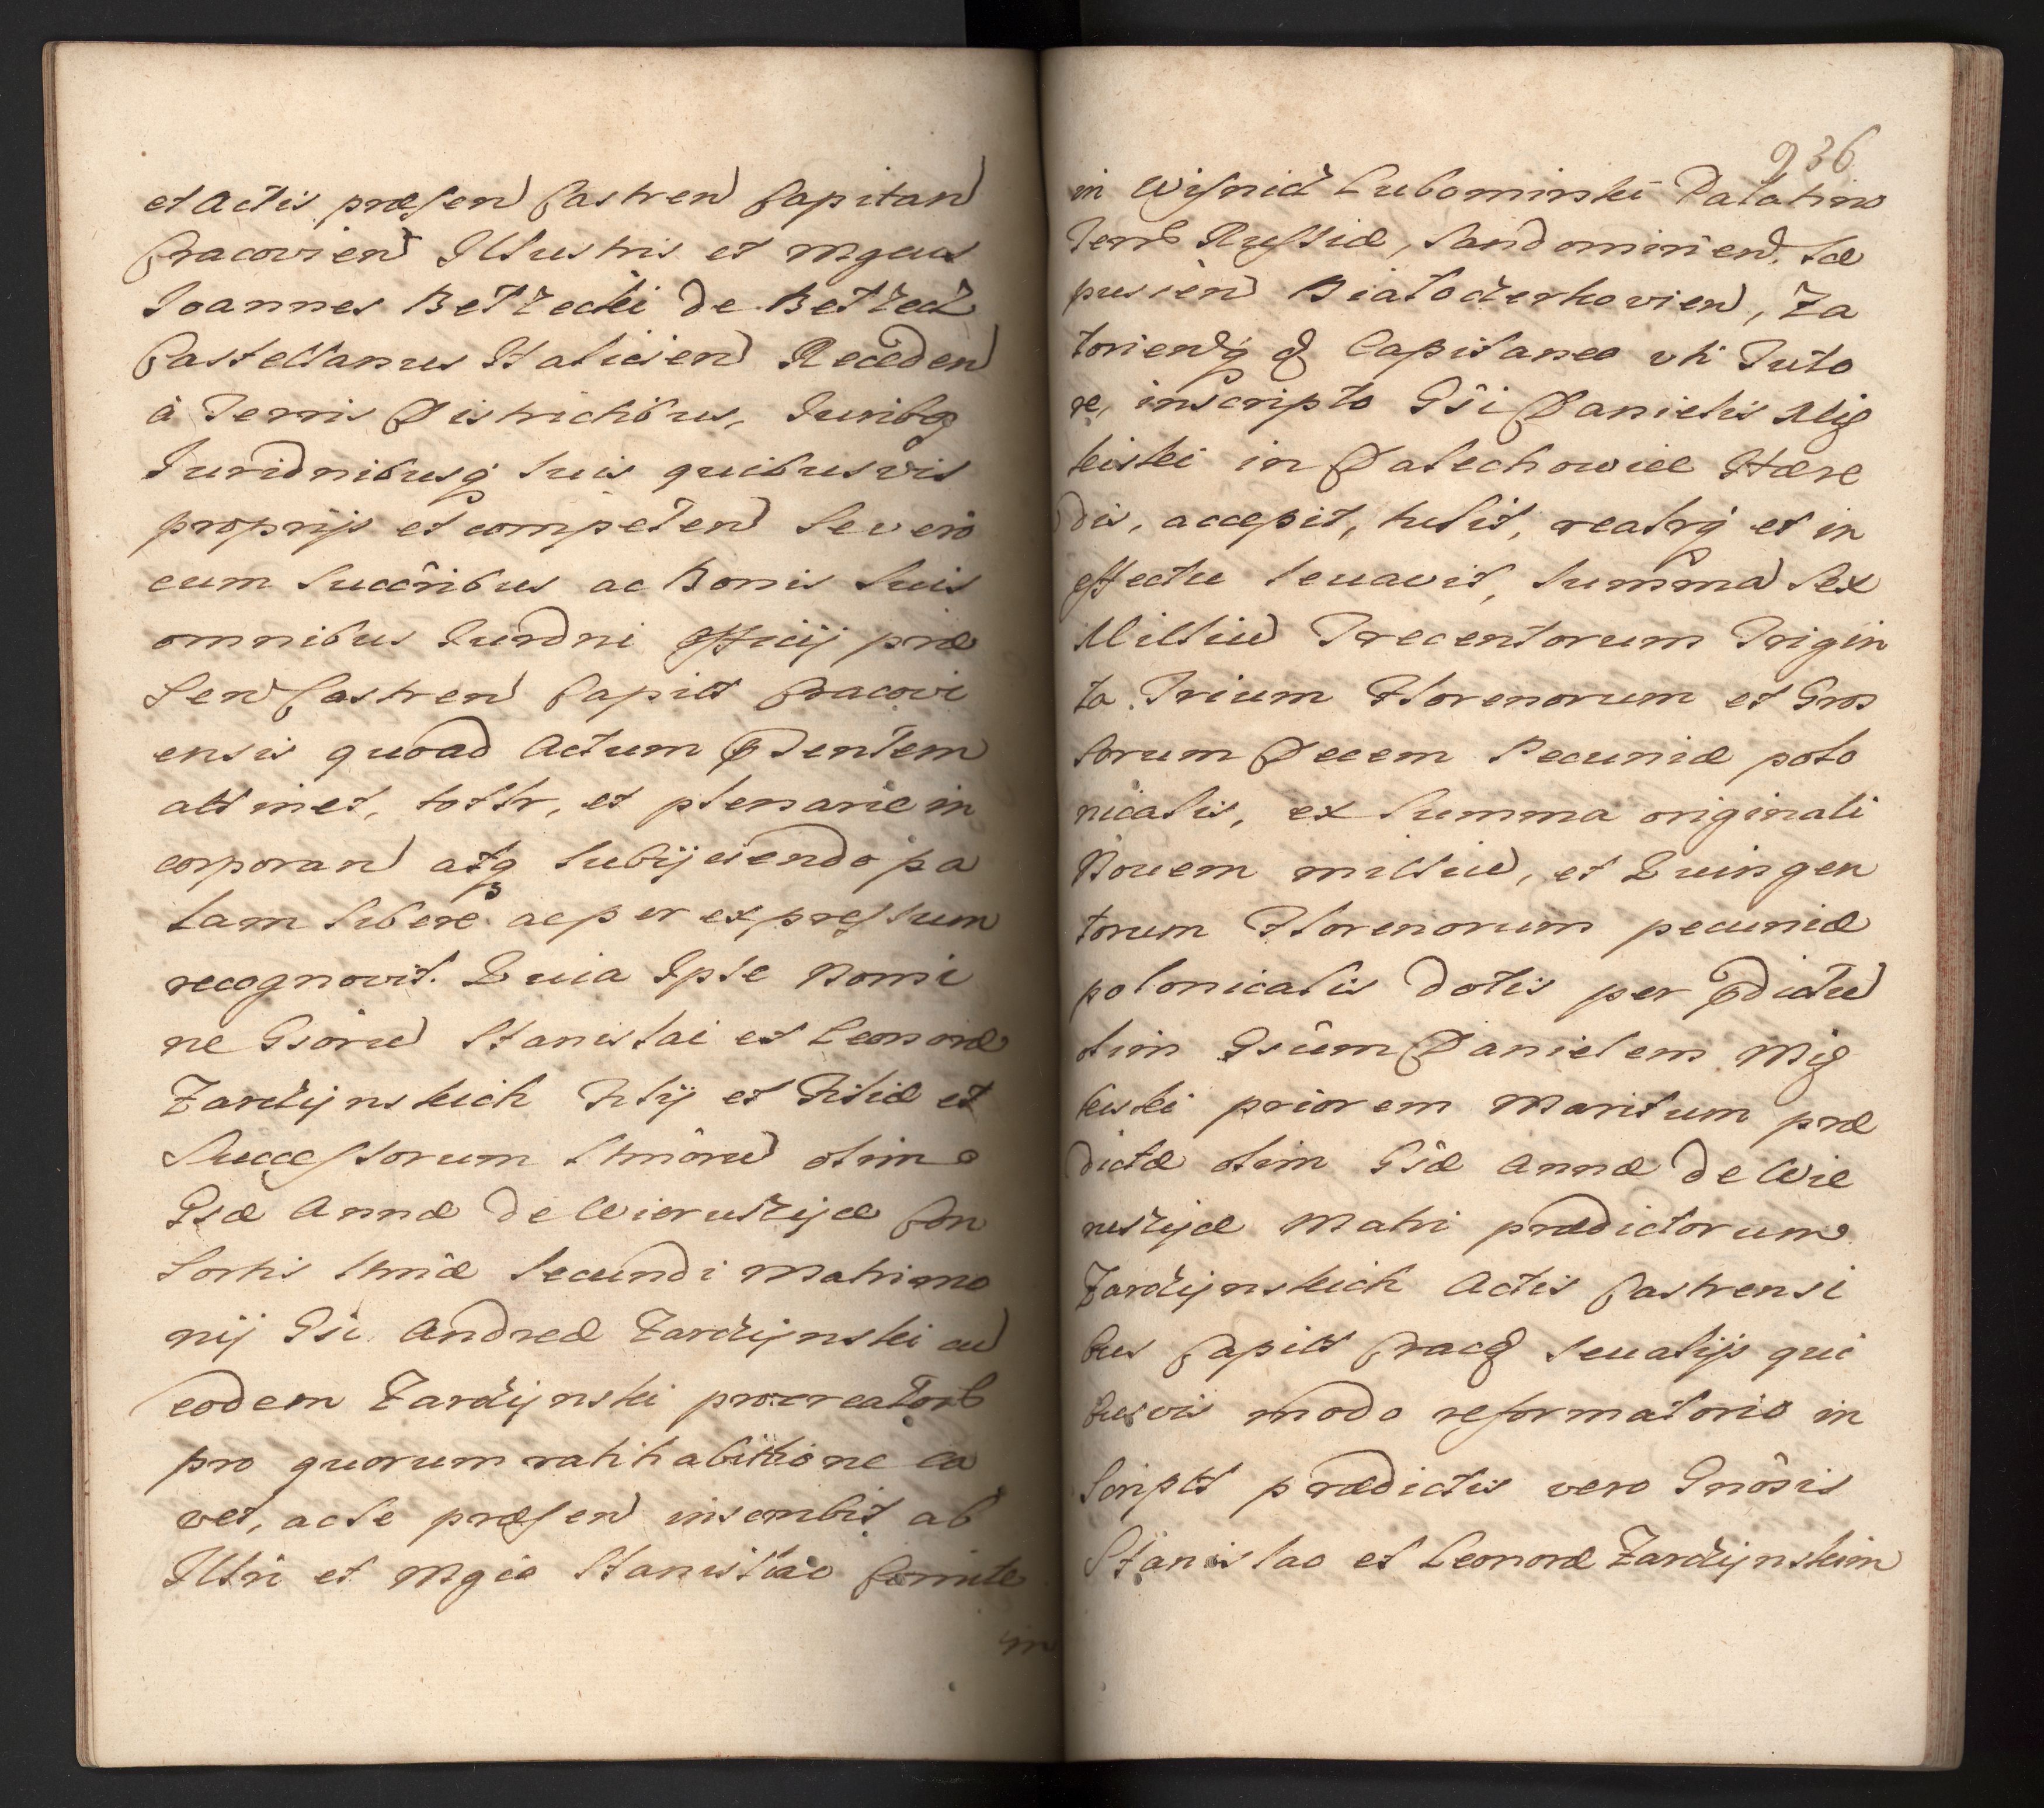 et Actis præsen Castren Capitan
Cracovien Illustris et Mgcus
Joannes Bełżecki de Bełżec
Castellanus Halicien Receden
à Terris Districtibus, Juribq
Juridnibusq suis quibusvis
proprijs et competen Se vero
cum Succribus ac Bonis Suis
omnibus Jurdni Officij præ
Sen Castren Capitt Cracovi
ensis quoad Actum pdentem
attinet, totlr, et plenarie in
corporan atq Subijciendo pa
lam libere ac per expressum
recognovit. Quia Ipse Nomi
ne Gsoru Stanislai et Leonoræ
Żardijnskich Filij et Filiæ et
Successorum lthmoru olim
Gsæ Annæ de Wierusżijæ Con
Sortis lthmæ Secundi Matrimo
nij Gsi Andreæ Żardijnski cu
eodem Żardijnski procreatorb
pro quorum ratihabitione ca
vet, ac se præsen inscribit ab
Illri et Mgco Stanislao Comite
in
936
in Wisnic Lubomirski Palatino
Terrb Russiæ, Sandomirien, Sce
pusien Białocerkovien, Za
torienq q Capitaneo uti Tuto
re, inscripto Gsi Danielis Mig
leiski in Dalechowice Hære
dis, accepit, tulit, realrq et in
effectu levavit, Summa Sex
Milliu Trecentorum Trigin
ta Trium Florenorum et Gros
Sorum Decem Pecuniæ polo
nicalis, ex Summa originali
Novem milliu, et Quingen
torum Florenorum pecuniæ
polonicalis dotis per pdictu
olim Gsum Danielem Mig
leiski priorem Maritum præ
dictæ olim Gsæ Annæ de Wie
rusżijæ Matri prædictorum
Żardijnskich Actis Castrensi
bus Capitt Cracq Seu alijs qui
busvis modo reformatorio in
Scriptt prædictis vero Gnosis
Stanislao et Leonoræ Żardijnskim